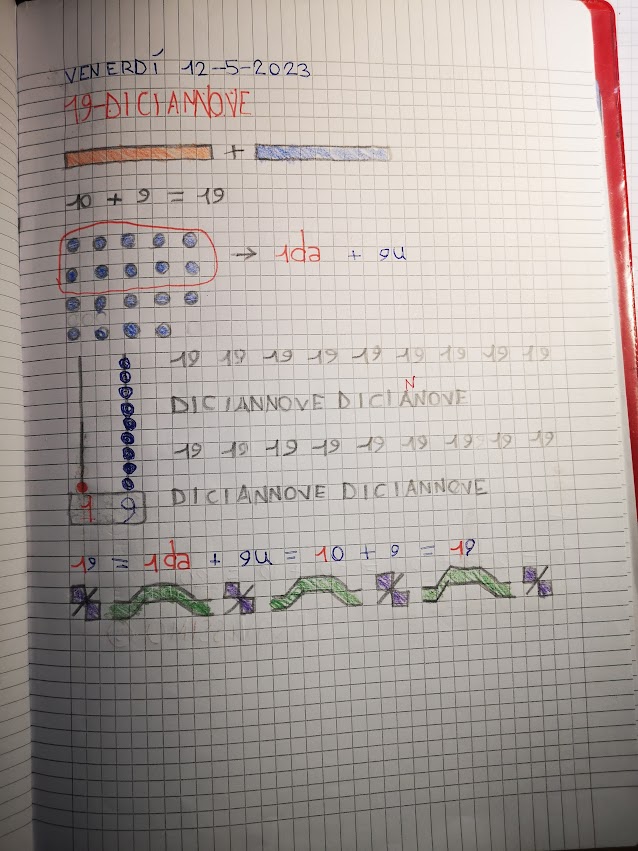 VENERDÍ 12-5-2023
19-DICIANNOVE
+
10 + 9 = 19
→ 1da + 9u
19 19 19 19 19 19 19 19 19
N
DICIANNOVE DICIANOVE
19 19 19 19 19 19 19 19 19
DICIANNOVE DICIANNOVE
1 9
19 = 1da + 9u = 10 + 9 = 19